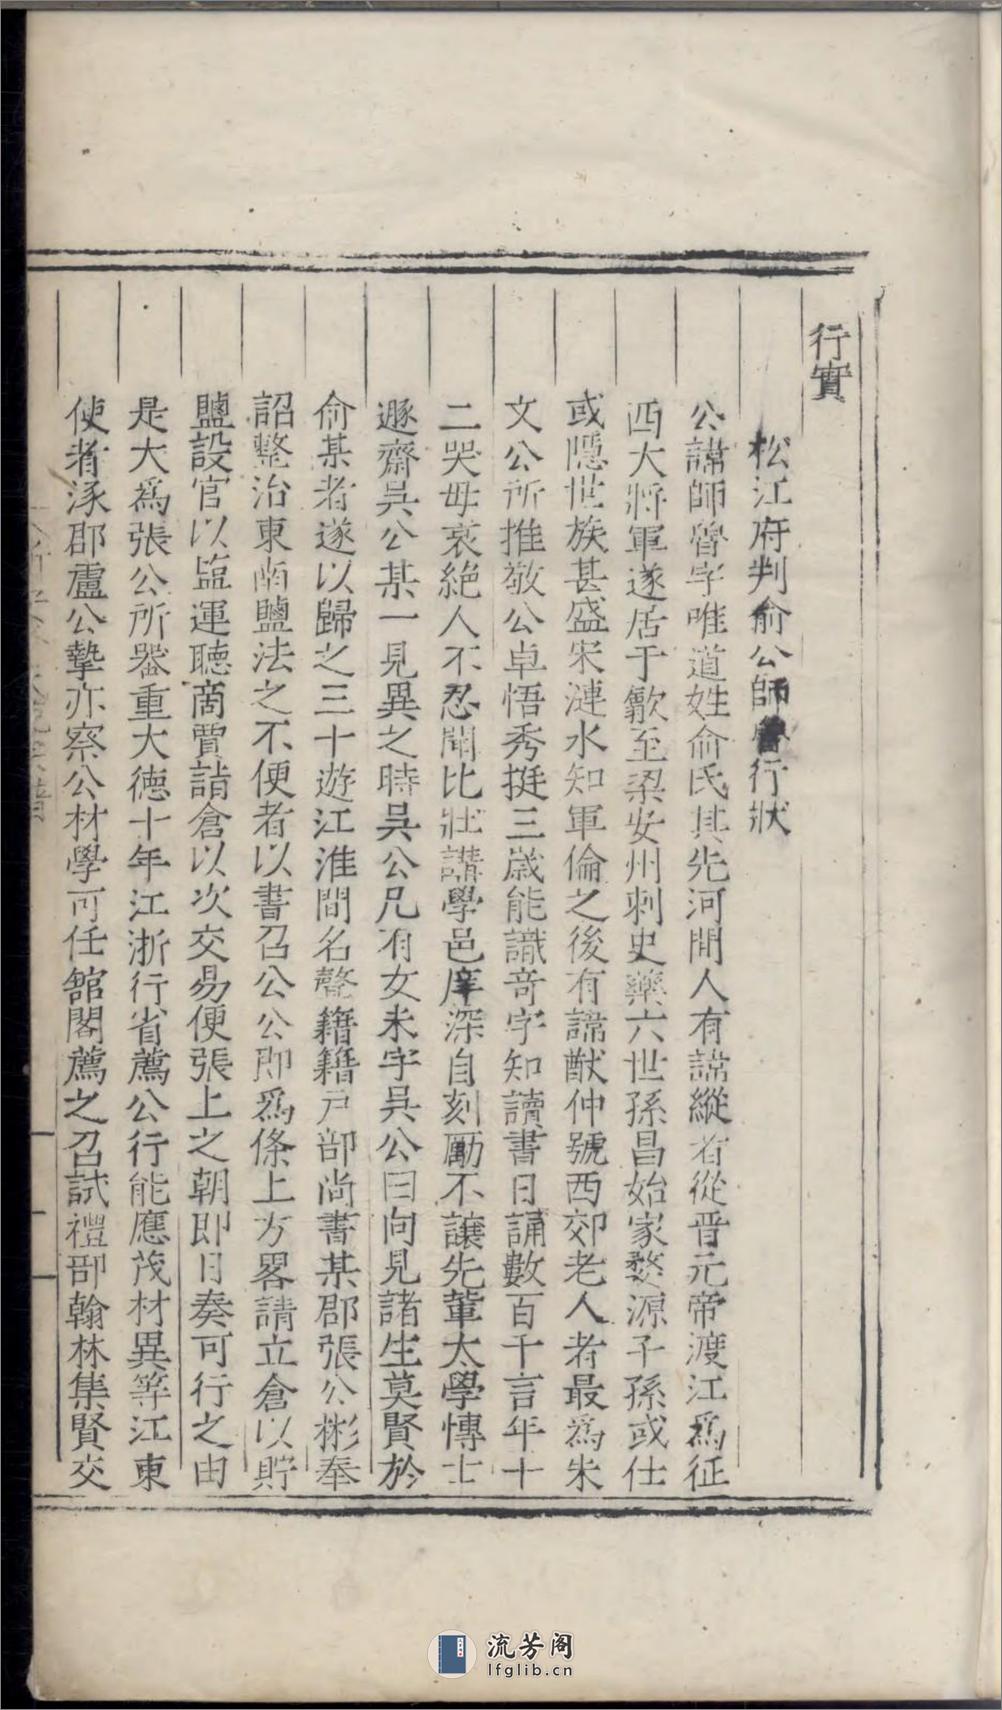 行實
松江府判俞公師魯行狀
公諱師魯字唯道姓俞氏其先河間人有諱縱者從晋元帝渡江爲征
西大將軍遂居于歙至梁安州刺史藥六世孫昌始家婺源子孫或仕
或隱世族甚盛宋漣水知軍倫之後有諱猷仲號西郊老人者最爲朱
文公所推敬公卓悟秀挺三歲能識奇字知讀書日誦數百千言年十
二哭母哀絶人不忍聞比壯講學邑庠深自刻勵不讓先軰太學博士
遯齋吳公某一見異之時吳公兄有女未字吳公曰向見諸生莫賢於
俞某者遂以歸之三十遊江淮間名聲籍籍户部尚書某郡張公彬奉
詔整治東南鹽法之不便者以書召公公即爲條上方畧請立倉以貯
鹽設官以監運聽商賈詣倉以次交易便張上之朝即日奏可行之由
是大爲張公所器重大德十年江浙行省薦公行能應茂材異等江東
使者涿郡盧公摯亦察公材學可任舘閣薦之召試禮部翰林集賢交
流芳阁
lfglib.cn